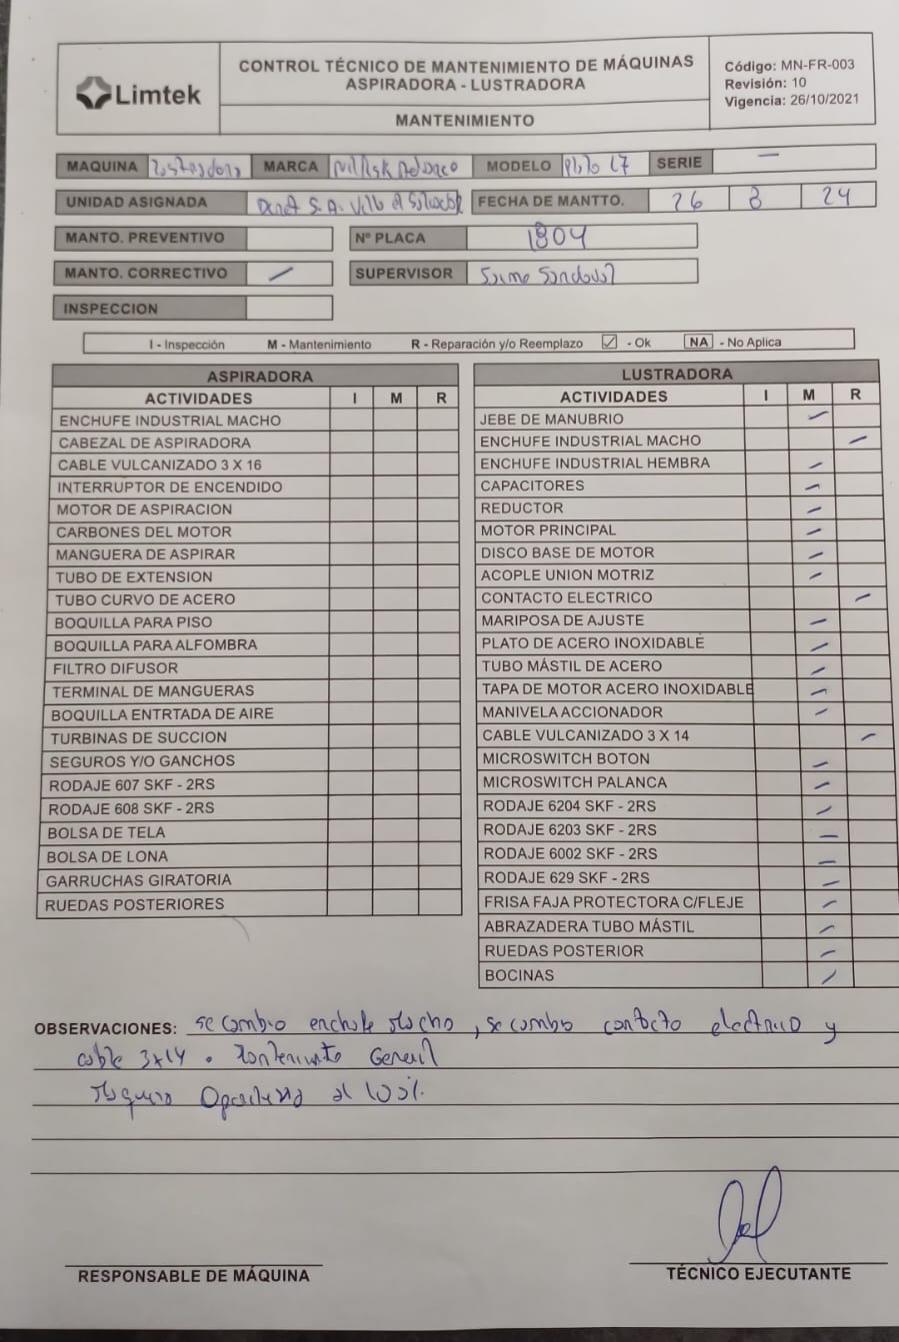 Limtek
CONTROL TÉCNICO DE MANTENIMIENTO DE MÁQUINAS
ASPIRADORA - LUSTRADORA
MANTENIMIENTO
Código: MN-FR-003
Revisión: 10
Vigencia: 26/10/2021
MAQUINA Lustradora MARCA Nilfisk Advance MODELO Pblo 17 SERIE —
UNIDAD ASIGNADA S.A. Villa el Salvador FECHA DE MANTTO. 26 8 24
MANTO. PREVENTIVO Nº PLACA 1804
MANTO. CORRECTIVO / SUPERVISOR Jaime Sandoval
INSPECCION
I - Inspección M - Mantenimiento R - Reparación y/o Reemplazo ☑ - Ok NA - No Aplica
ASPIRADORA
ACTIVIDADES I M R
ENCHUFE INDUSTRIAL MACHO
CABEZAL DE ASPIRADORA
CABLE VULCANIZADO 3 X 16
INTERRUPTOR DE ENCENDIDO
MOTOR DE ASPIRACION
CARBONES DEL MOTOR
MANGUERA DE ASPIRAR
TUBO DE EXTENSION
TUBO CURVO DE ACERO
BOQUILLA PARA PISO
BOQUILLA PARA ALFOMBRA
FILTRO DIFUSOR
TERMINAL DE MANGUERAS
BOQUILLA ENTRTADA DE AIRE
TURBINAS DE SUCCION
SEGUROS Y/O GANCHOS
RODAJE 607 SKF - 2RS
RODAJE 608 SKF - 2RS
BOLSA DE TELA
BOLSA DE LONA
GARRUCHAS GIRATORIA
RUEDAS POSTERIORES
LUSTRADORA
ACTIVIDADES I M R
JEBE DE MANUBRIO
ENCHUFE INDUSTRIAL MACHO
ENCHUFE INDUSTRIAL HEMBRA
CAPACITORES
REDUCTOR
MOTOR PRINCIPAL
DISCO BASE DE MOTOR
ACOPLE UNION MOTRIZ
CONTACTO ELECTRICO
MARIPOSA DE AJUSTE
PLATO DE ACERO INOXIDABLE
TUBO MÁSTIL DE ACERO
TAPA DE MOTOR ACERO INOXIDABLE
MANIVELA ACCIONADOR
CABLE VULCANIZADO 3 X 14
MICROSWITCH BOTON
MICROSWITCH PALANCA
RODAJE 6204 SKF - 2RS
RODAJE 6203 SKF - 2RS
RODAJE 6002 SKF - 2RS
RODAJE 629 SKF - 2RS
FRISA FAJA PROTECTORA C/FLEJE
ABRAZADERA TUBO MÁSTIL
RUEDAS POSTERIOR
BOCINAS
OBSERVACIONES: se cambio enchufe Macho, se cambio contacto electrico y
cable 3x14. Mantenimiento General
Maquina Operativa al 100%.
RESPONSABLE DE MÁQUINA
TÉCNICO EJECUTANTE